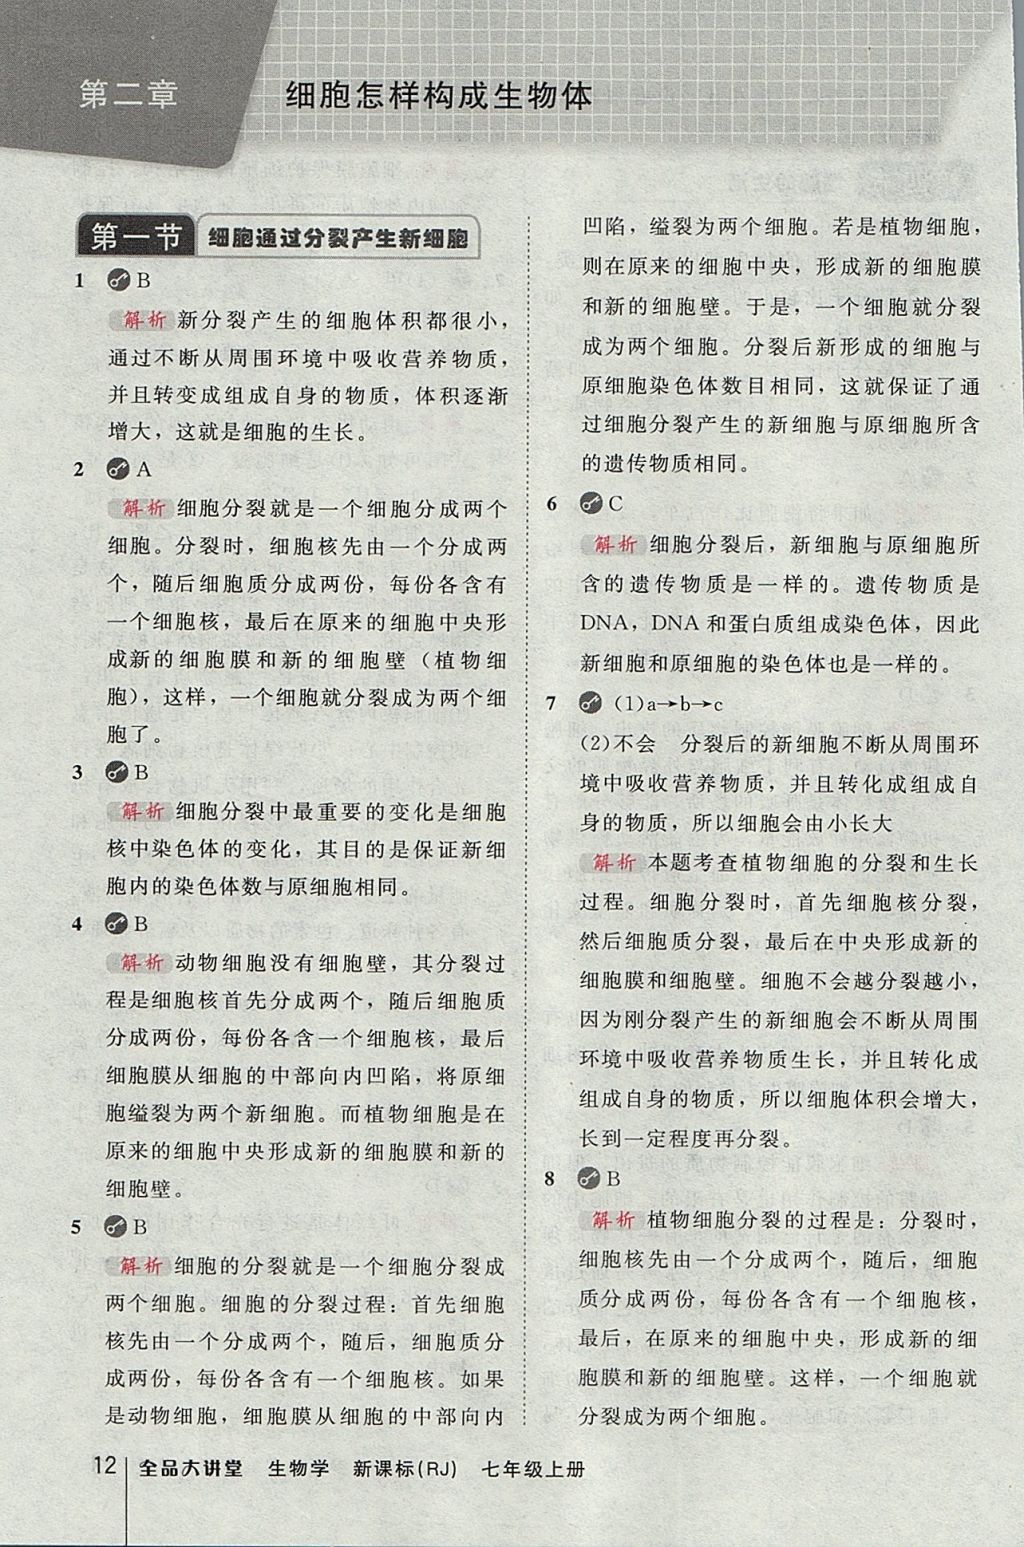 第二章
细胞怎样构成生物体
第一节 细胞通过分裂产生新细胞
1 B
解析 新分裂产生的细胞体积都很小，
通过不断从周围环境中吸收营养物质，
并且转变成组成自身的物质，体积逐渐
增大，这就是细胞的生长。
2 A
解析 细胞分裂就是一个细胞分成两个
细胞。分裂时，细胞核先由一个分成两
个，随后细胞质分成两份，每份各含有
一个细胞核，最后在原来的细胞中央形
成新的细胞膜和新的细胞壁（植物细
胞），这样，一个细胞就分裂成为两个细
胞了。
3 B
解析 细胞分裂中最重要的变化是细胞
核中染色体的变化，其目的是保证新细
胞内的染色体数与原细胞相同。
4 B
解析 动物细胞没有细胞壁，其分裂过
程是细胞核首先分成两个，随后细胞质
分成两份，每份各含一个细胞核，最后
细胞膜从细胞的中部向内凹陷，将原细
胞缢裂为两个新细胞。而植物细胞是在
原来的细胞中央形成新的细胞膜和新的
细胞壁。
5 B
解析 细胞的分裂就是一个细胞分裂成
两个细胞。细胞的分裂过程：首先细胞
核先由一个分成两个，随后，细胞质分
成两份，每份各含有一个细胞核。如果
是动物细胞，细胞膜从细胞的中部向内
凹陷，缢裂为两个细胞。若是植物细胞，
则在原来的细胞中央，形成新的细胞膜
和新的细胞壁。于是，一个细胞就分裂
成为两个细胞。分裂后新形成的细胞与
原细胞染色体数目相同，这就保证了通
过细胞分裂产生的新细胞与原细胞所含
的遗传物质相同。
6 C
解析 细胞分裂后，新细胞与原细胞所
含的遗传物质是一样的。遗传物质是
DNA，DNA 和蛋白质组成染色体，因此
新细胞和原细胞的染色体也是一样的。
7 (1)a→b→c
(2)不会 分裂后的新细胞不断从周围环
境中吸收营养物质，并且转化成组成自
身的物质，所以细胞会由小长大
解析 本题考查植物细胞的分裂和生长
过程。细胞分裂时，首先细胞核分裂，
然后细胞质分裂，最后在中央形成新的
细胞膜和细胞壁。细胞不会越分裂越小，
因为刚分裂产生的新细胞会不断从周围
环境中吸收营养物质生长，并且转化成
组成自身的物质，所以细胞体积会增大，
长到一定程度再分裂。
8 B
解析 植物细胞分裂的过程是：分裂时，
细胞核先由一个分成两个，随后，细胞
质分成两份，每份各含有一个细胞核，
最后，在原来的细胞中央，形成新的细
胞膜和新的细胞壁。这样，一个细胞就
分裂成为两个细胞。
12 全品大讲堂 生物学 新课标(RJ) 七年级上册